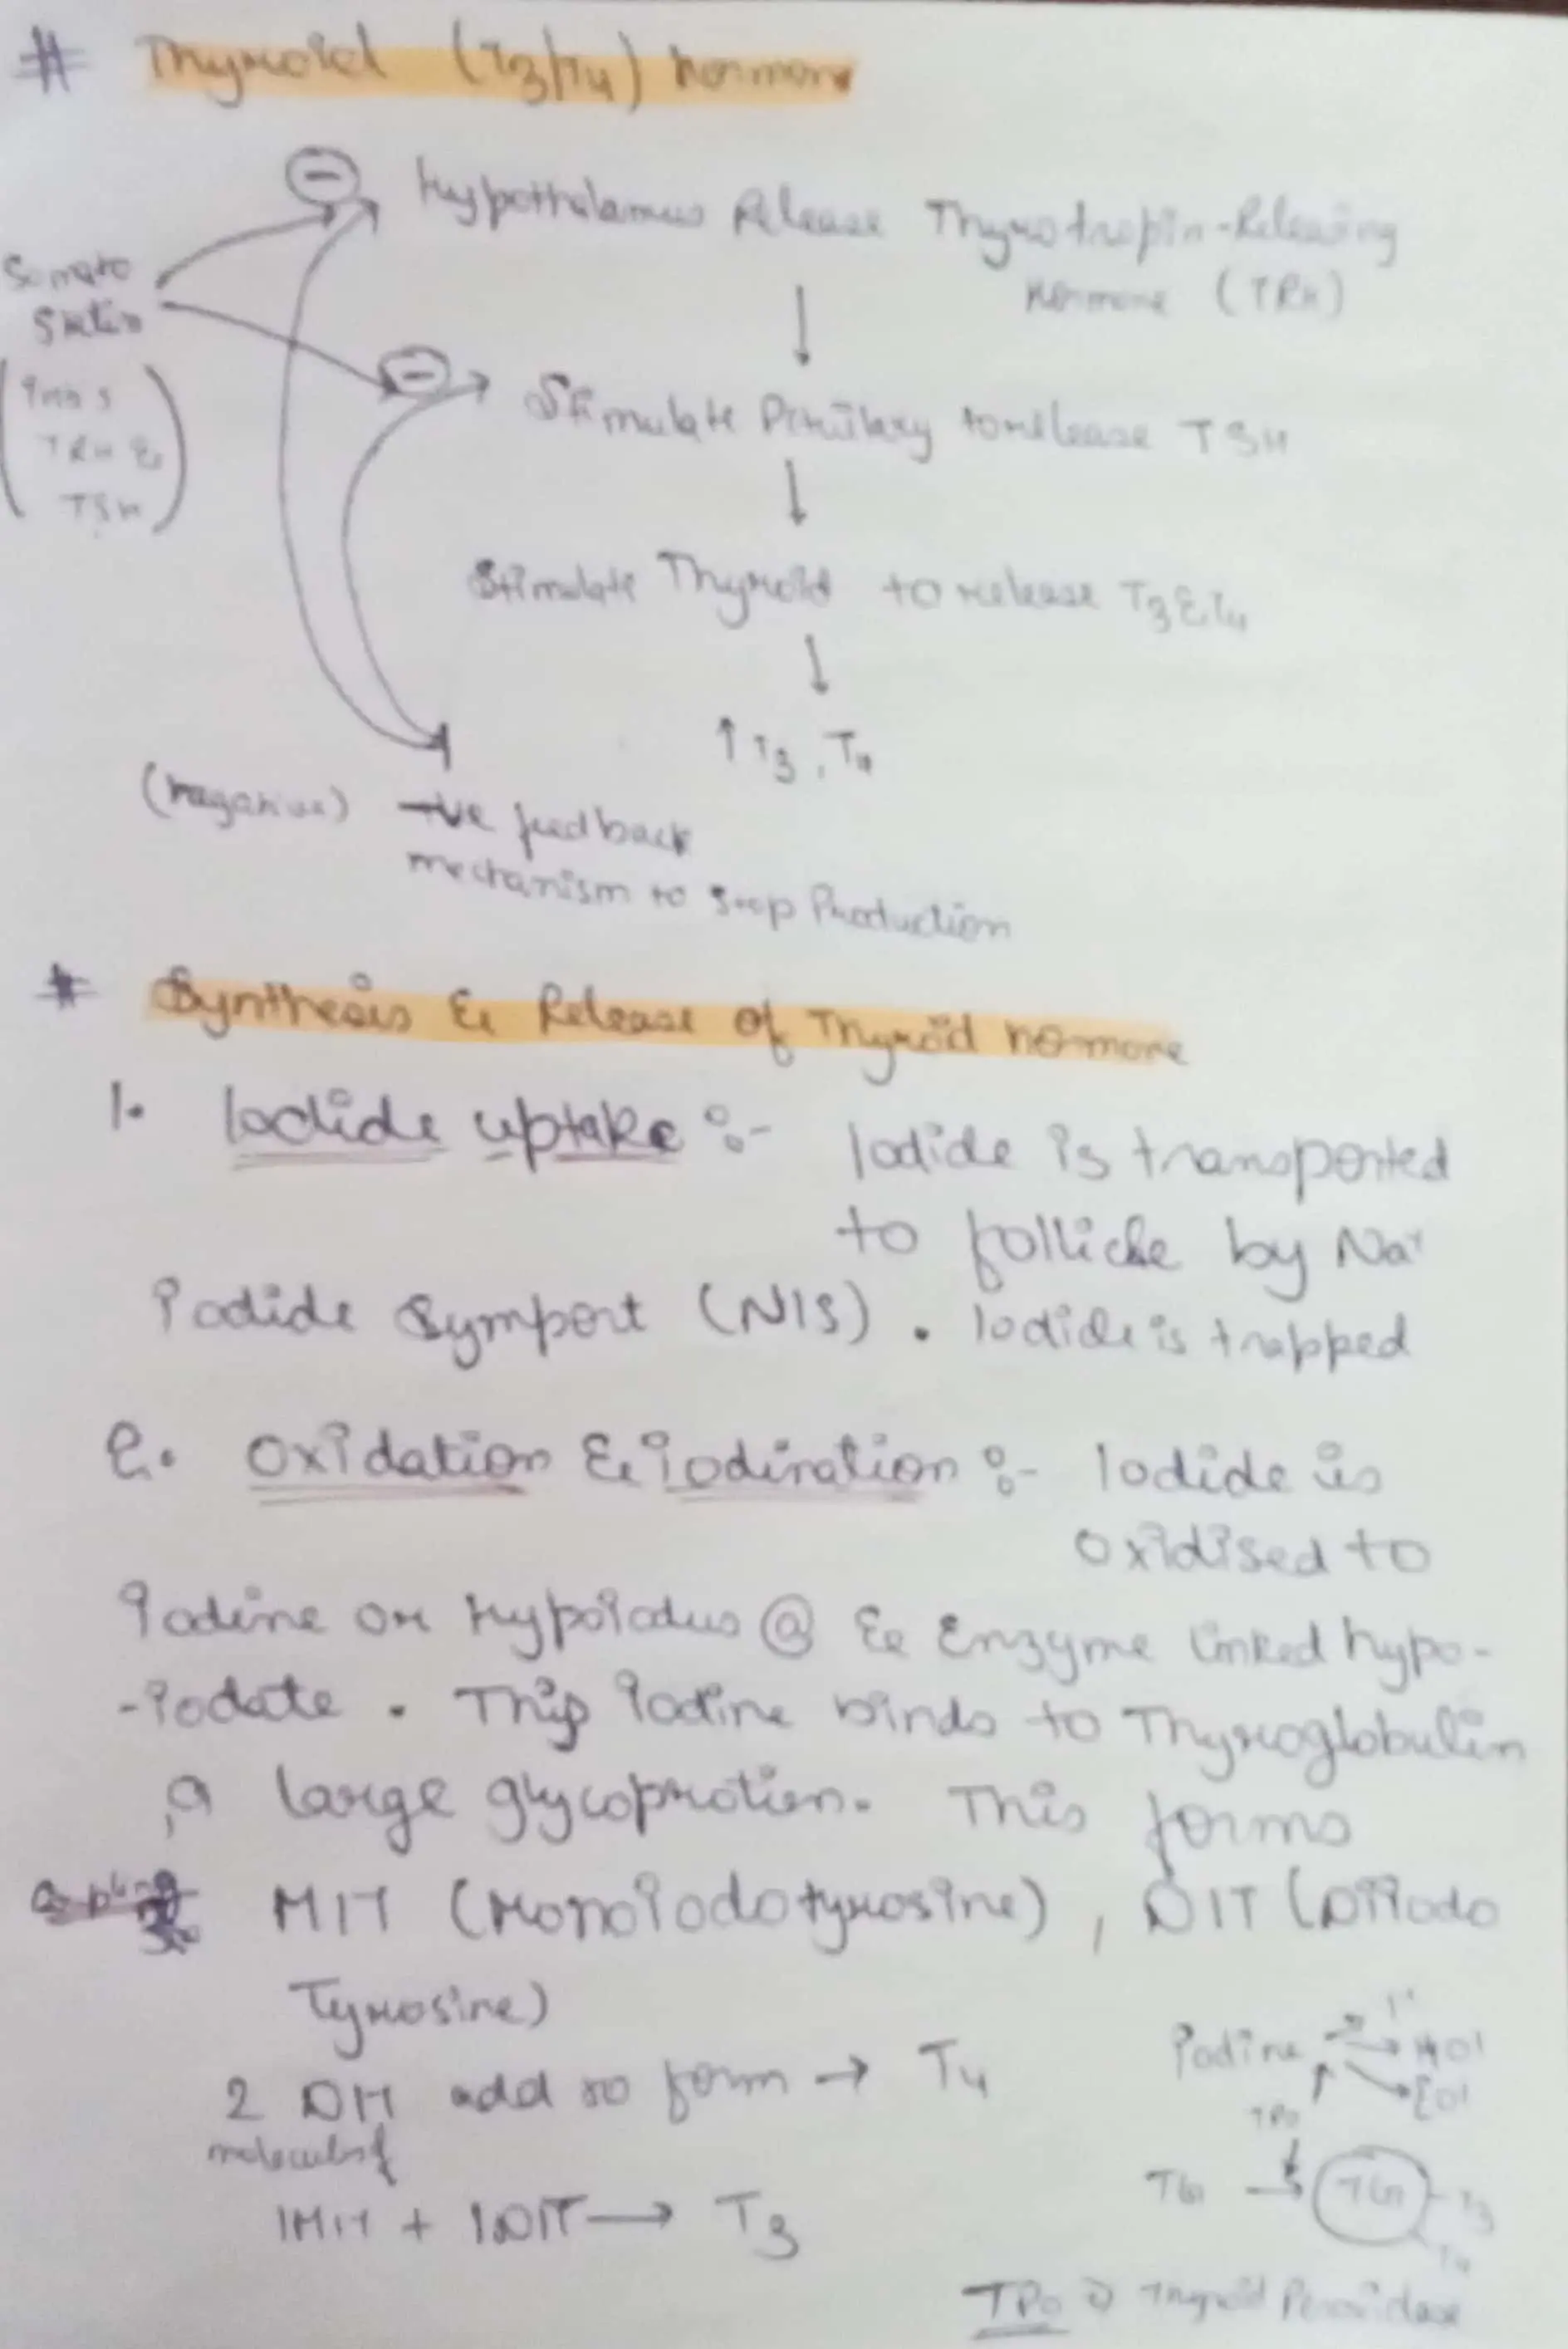 # Thyroid (T3/T4) hormone
Hypothalamus Release Thyrotropin-Releasing
hormone (TRH)
Somato
Statin
(Inhi s
TRH &
TSH)
Stimulate Pituitary to release TSH
Stimulate Thyroid to release T3 & T4
↑ T3, T4
(negative) -ve feedback
mechanism to stop Production
# Synthesis & Release of Thyroid hormone
1. Iodide uptake :- Iodide is transported
to follicle by Na+
Iodide Symport (NIS). Iodide is trapped
2. Oxidation & iodination :- Iodide is
oxidised to
Iodine or Hypoiodus @ & Enzyme linked hypo-
-iodate. This iodine binds to Thyroglobulin
, a large glycoprotien. This forms
Coupling MIT (Monoiodotyrosine), DIT (Diiodo
Tyrosine)
2 DIT add to form → T4
molecules of
1 MIT + 1 DIT → T3
Iodine → I+
→ HOI
→ EOI
TPO
TG → TG - T3
T4
TPO → Thyroid Peroxidase